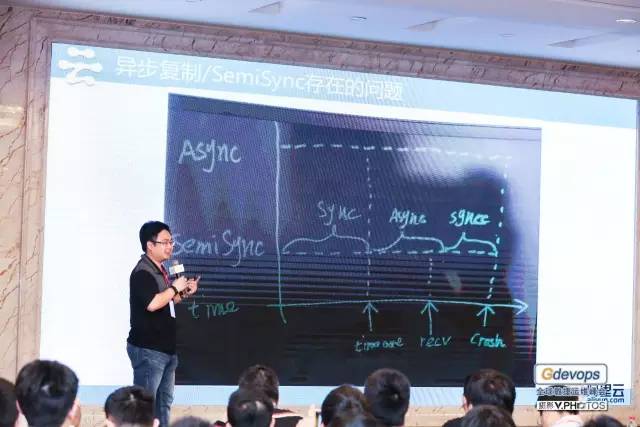 云
异步复制/SemiSync存在的问题
Async
Sync
Async
sync
SemiSync
time
timeout
recv
Crash
Gdevops
全球敏捷运维峰会
摄影V.PHOTOS